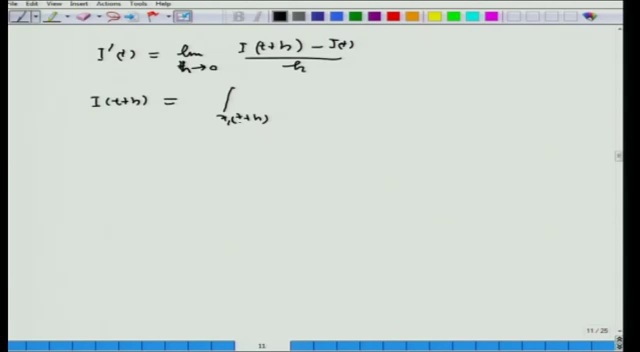 Edit View Insert Actions Tools Help
I'(t) = lim h→0 (I(t+h) - I(t))/h
I(t+h) = ∫ x₁(t+h)
11 / 25
11